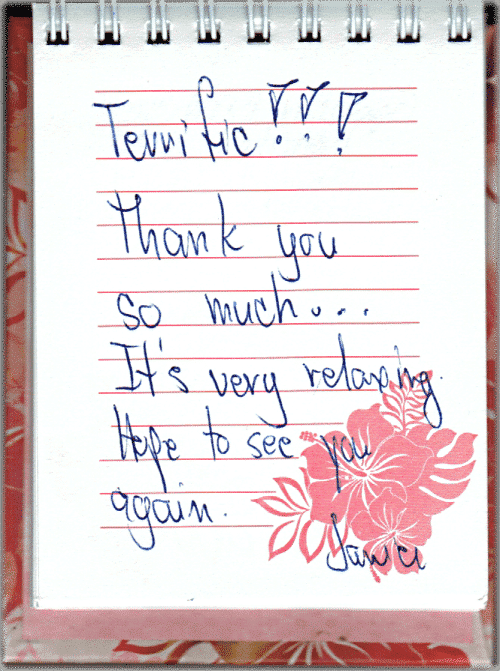 Terrific!!!
Thank you
so much...
It's very relaxing.
Hope to see you
again.